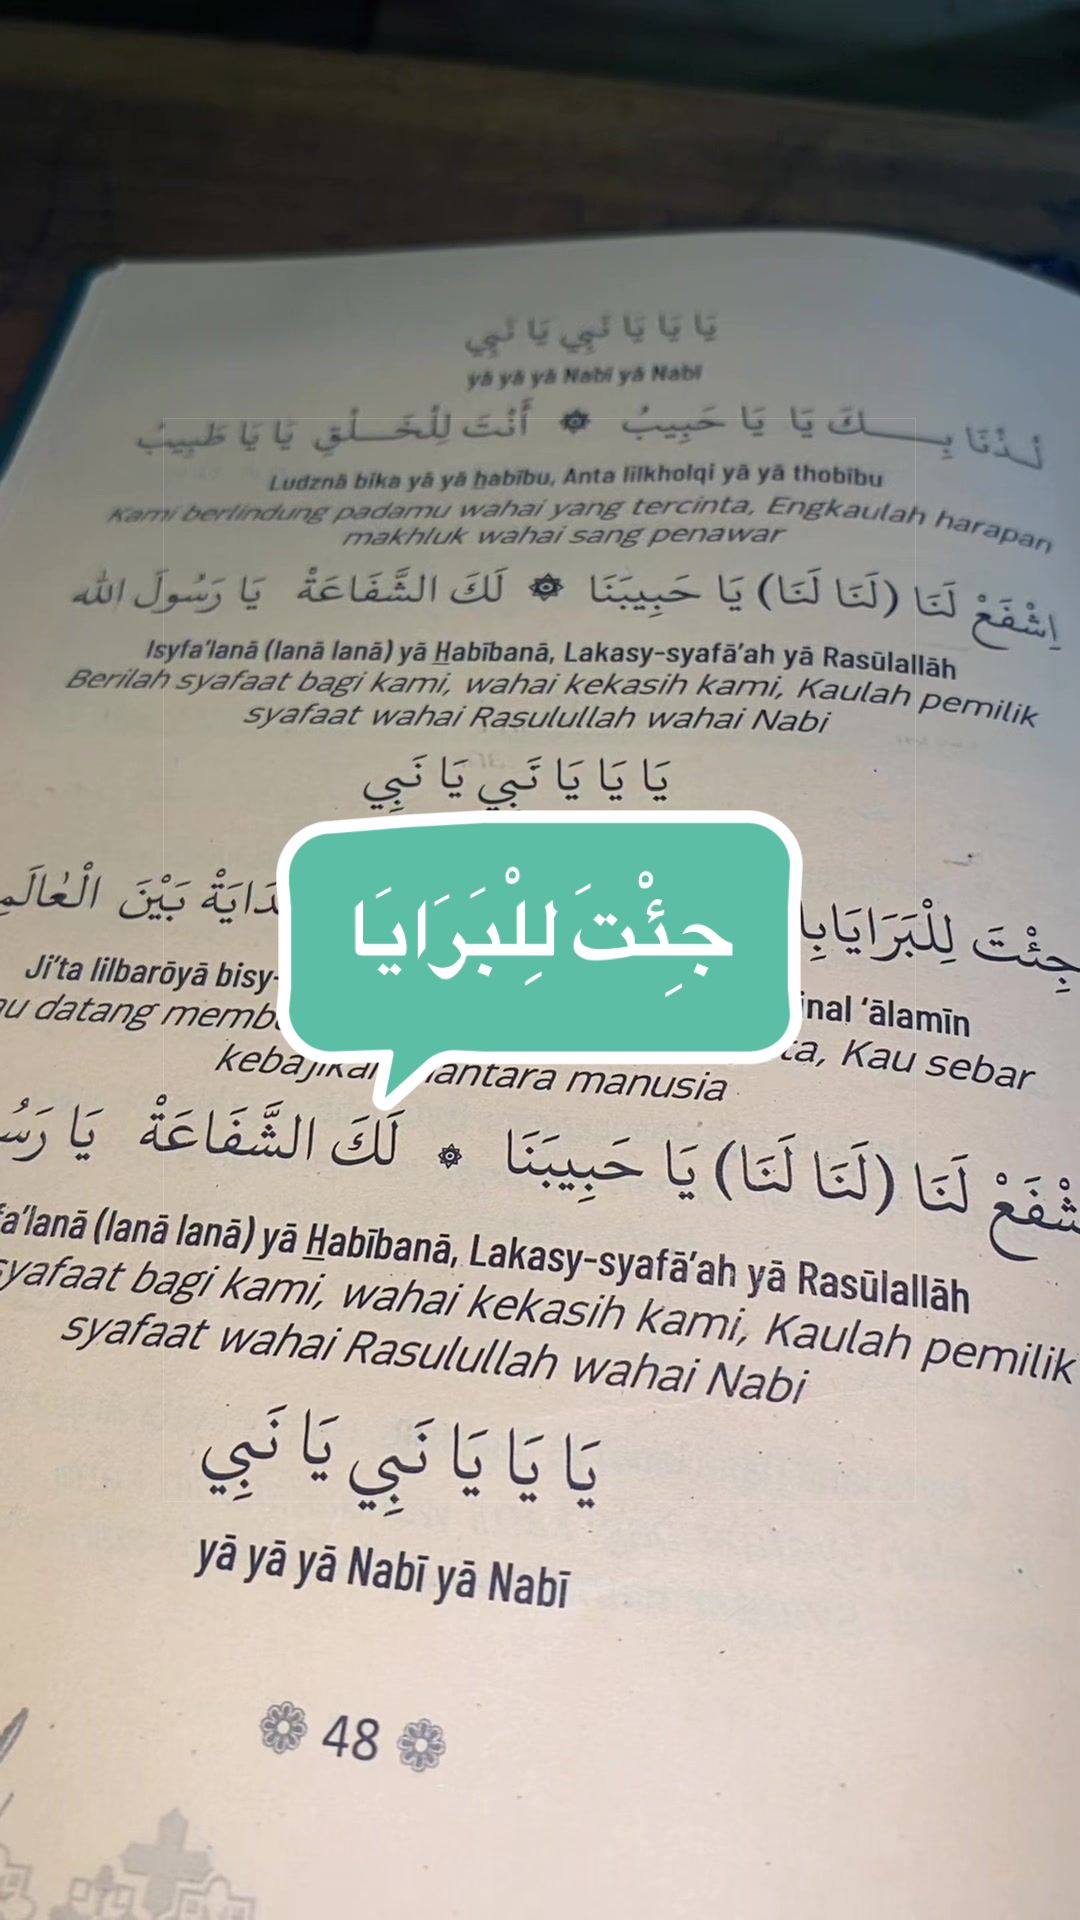 يَا يَا يَا نَبِي يَا نَبِي
yā yā yā Nabī yā Nabī
لُذْنَا بِكَ يَا يَا حَبِيبُ ۞ أَنْتَ لِلْخَلْقِ يَا يَا طَبِيبُ
Ludznā bika yā yā habību, Anta lilkholqi yā yā thobību
Kami berlindung padamu wahai yang tercinta, Engkaulah harapan
makhluk wahai sang penawar
اِشْفَعْ لَنَا (لَنَا لَنَا) يَا حَبِيبَنَا ۞ لَكَ الشَّفَاعَةْ يَا رَسُولَ الله
Isyfa'lanā (lanā lanā) yā Habībanā, Lakasy-syafā'ah yā Rasūlallāh
Berilah syafaat bagi kami, wahai kekasih kami, Kaulah pemilik
syafaat wahai Rasulullah wahai Nabi
يَا يَا يَا نَبِي يَا نَبِي
جِئْتَ لِلْبَرَايَا
جِئْتَ لِلْبَرَايَا بَيْنَ
Ji'ta lilbarōyā 'ālamīn
datang Kau sebar
manusia
لَنَا (لَنَا لَنَا) يَا حَبِيبَنَا ۞ لَكَ الشَّفَاعَةْ يَا
(lanā lanā) yā Habībanā, Lakasy-syafā'ah yā Rasūlallāh
bagi kami, wahai kekasih kami, Kaulah pemilik
syafaat wahai Rasulullah wahai Nabi
يَا يَا يَا نَبِي يَا نَبِي
yā yā yā Nabī yā Nabī
48